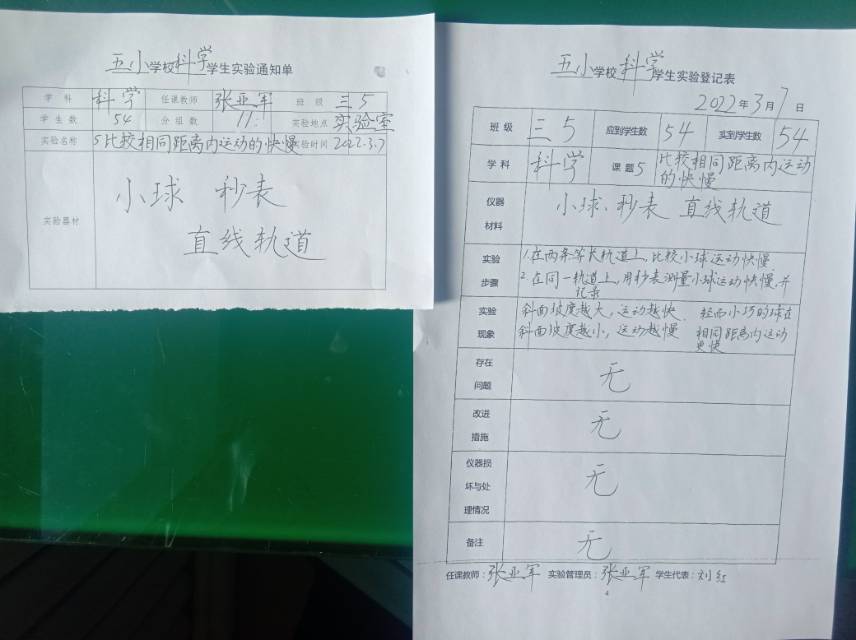 五小学校科学学生实验通知单
学 科 科学 任课教师 张亚军 班 级 三5
学生数 54 分组数 11 实验地点 实验室
实验名称 5比较相同距离内运动的快慢 实验时间 2022.3.7
实验器材 小球 秒表
直线轨道
五小学校科学学生实验登记表
2022年3月7日
班级 三5 应到学生数 54 实到学生数 54
学科 科学 课题 5 比较相同距离内运动的快慢
仪器材料 小球、秒表 直线轨道
实验步骤 1.在两条等长轨道上,比较小球运动快慢
2.在同一轨道上,用秒表测量小球运动快慢,并记录
实验现象 斜面坡度越大,运动越快、轻而小巧的球在
斜面坡度越小,运动越慢 相同距离内运动
更慢
存在问题 无
改进措施 无
仪器损坏与处理情况 无
备注 无
任课教师:张亚军 实验管理员:张亚军 学生代表:刘红
4